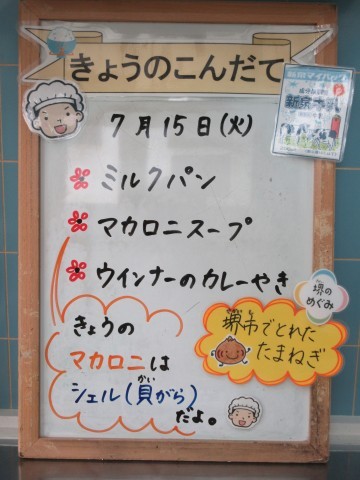 きょうのこんだて
7月15日(火)
ミルクパン
マカロニスープ
ウインナーのカレーやき
堺の
めぐみ
堺市でとれた
たまねぎ
きょうの
マカロニは
シェル(貝がら)
かい
だよ。